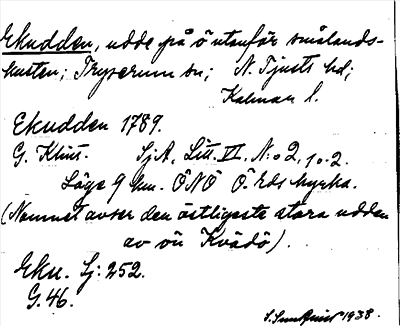 Ekudden, udde på ö utanför smålands-
kusten; Tryserum sn; N. Tjusts hd;
Kalmar l.
Ekudden 1789.
G. Klint. SjA, Litt. VI. N:o 2, 10.2.
Läge 9 km. ÖNÖ Ö. Eds kyrka.
(Namnet avser den östligaste stora udden
av ön Kvädö).
Eku. Sj: 252.
G. 46.
1938.